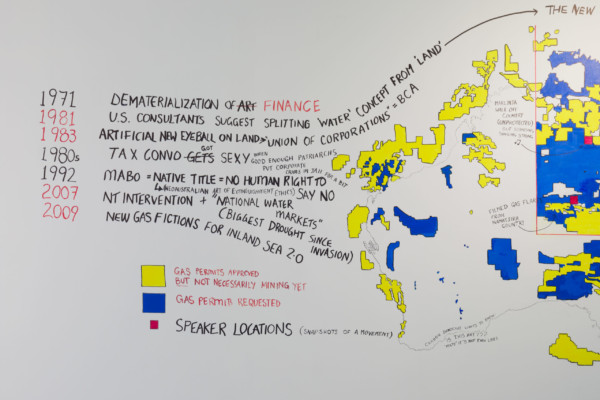 THE NEW
1971 DEMATERIALIZATION OF ART FINANCE
1981 U.S. CONSULTANTS SUGGEST SPLITTING 'WATER' CONCEPT FROM 'LAND'
1983 ARTIFICIAL NEW EYEBALL ON LAND = 'UNION OF CORPORATIONS' = BCA
1980s TAX CONVO GETS GOT SEXY WHEN
GOOD ENOUGH PATRIARCHS
PUT CORPORATE
CROOKS IN JAIL FOR A BIT
1992 MABO = NATIVE TITLE = NO HUMAN RIGHT TO SAY NO
2007 NT INTERVENTION + "NATIONAL WATER MARKETS"
2009 NEW GAS FICTIONS FOR INLAND SEA 2.0
(BIGGEST DROUGHT SINCE INVASION)
GAS PERMITS APPROVED
BUT NOT NECESSARILY MINING YET
GAS PERMITS REQUESTED
SPEAKER LOCATIONS (SNAPSHOTS OF A MOVEMENT)
WALK ON
COUNTRY